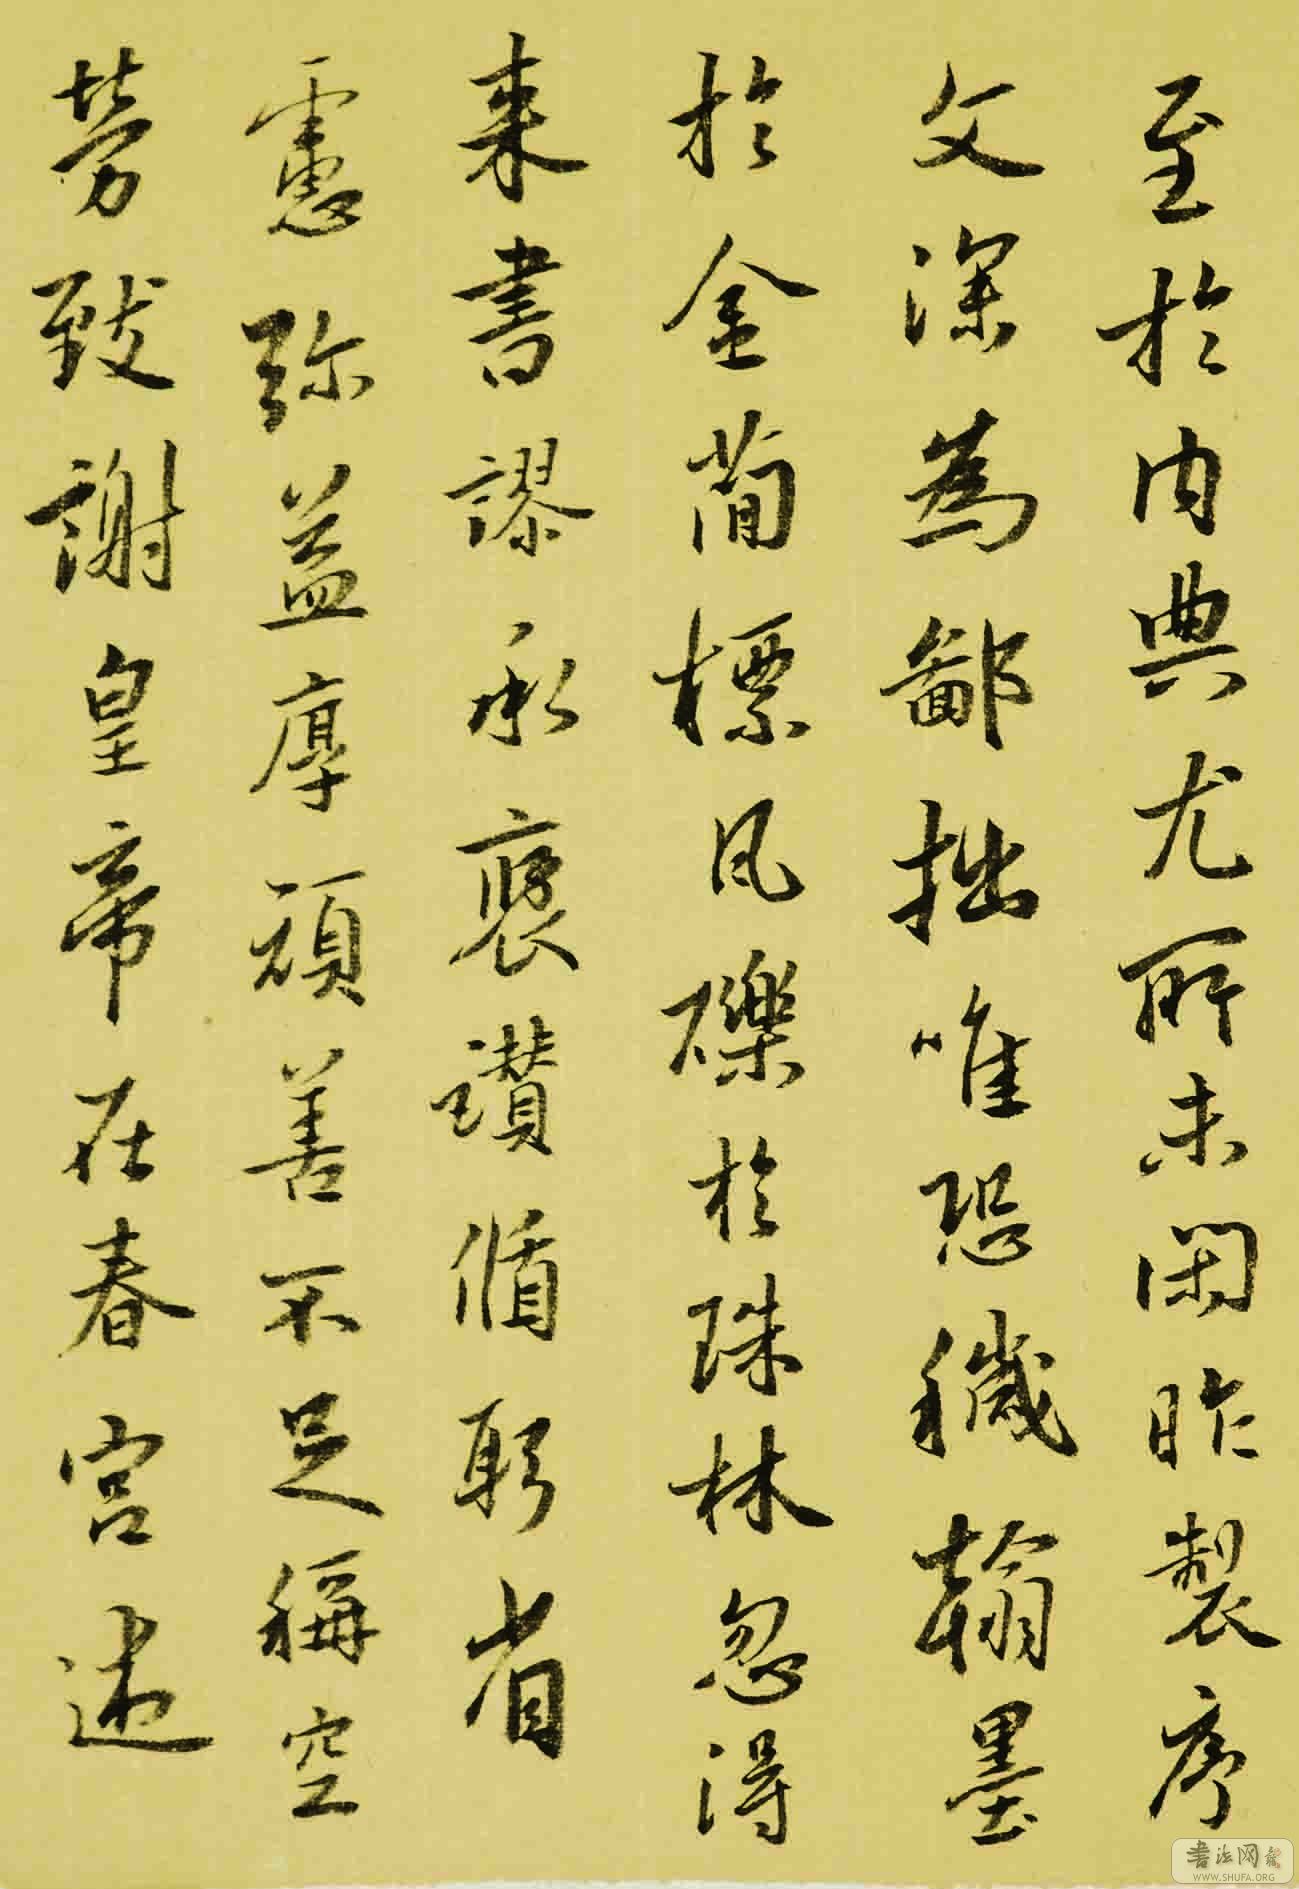 至於内典尤所未閑昨製序
文深為鄙拙唯恐穢翰墨
於金蕳標凡礫於珠林忽得
来書謬承褒讃循躬省
慮弥益厚顔善不足稱空
勞致謝皇帝在春宫述
書法网
WWW.SHUFA.ORG